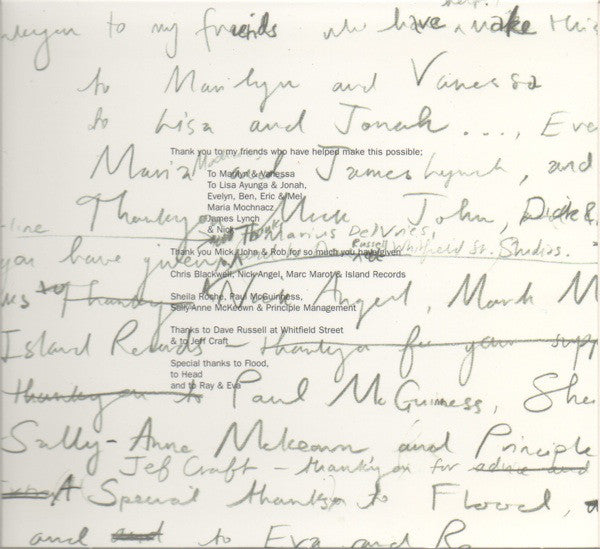 help!
thankyou to my friends who have make this
to Marilyn and Vanessa
to Lisa and Jonah...., Eve
Thank you to my friends who have helped make this possible;
Maria and James Lynch, and
Mochnacz
To Marilyn & Vanessa
To Lisa Ayunga & Jonah,
Evelyn, Ben, Eric & Mel
Maria Mochnacz
James Lynch
& Nick
Thankyou Mick, John, Dick &
to Marius DeVries,
Russell Whitfield St. Studios.
Thank you Mick, John & Rob for so much you have given
you have given
Chris Blackwell, Nick Angel, Marc Marot & Island Records
us to Thankyou Nick Angel, Mark M
Sheila Roche, Paul McGuinness,
Sally Anne McKeown & Principle Management
Thanks to Dave Russell at Whitfield Street
& to Jeff Craft
Island Records - thankyou for your supp
Special thanks to Flood,
to Head
and to Ray & Eva
thankyou to Paul McGuiness, She
Sally-Anne Mckeown and Principle
Jef Craft - thankyou for advice and
Special thanks to Flood,
and and to Eva and R